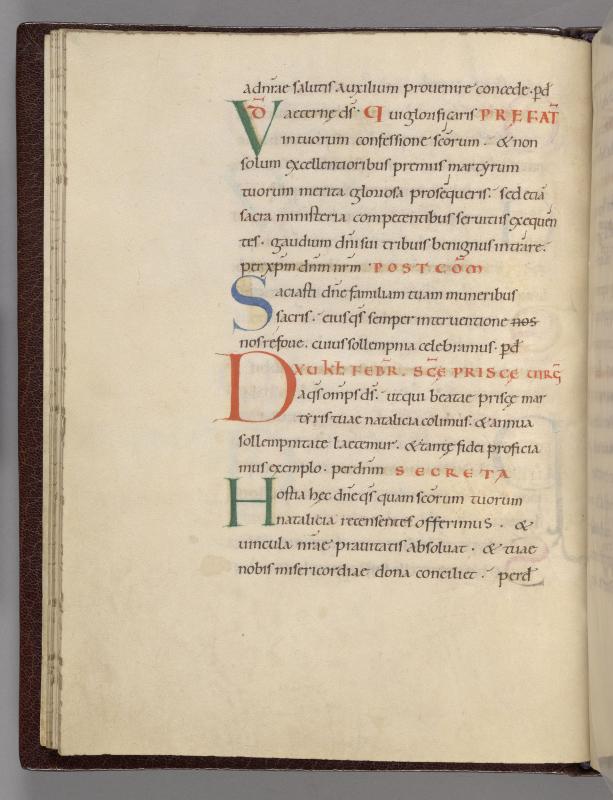 ad nr̄ae salutis auxilium prouenire concede· p̄d
VD̄ aeterne d̄s· Qui glorificaris PREFAT̄
in tuorum confessione sc̄orum· & non
solum excellentioribus premiis martyrum
tuorum merita gloriosa prosequeris· sed etiā
sacra ministeria competentibus seruitiis exequen
tes· gaudium dn̄i sui tribuis benignus intrare·
per xp̄m dn̄m nr̄m· POST CŌM
Saciasti dn̄e familiam tuam muneribus
sacris· eius q̄s semper interuentione nos
nos refoue· cuius sollempnia celebramus· p̄d
XV KL̄ FEBR̄· SC̄E PRISCE VIRḠ
Da q̄s om̄ps d̄s· ut qui beatae priscę mar
tyris tuae natalicia colimus· & annua
sollempnitate laetemur· & tantę fidei proficia
mus exemplo· per dn̄m SECRETA
Hostia hęc dn̄e q̄s quam sc̄orum tuorum
natalicia recensentes offerimus· &
uincula nr̄ae prauitatis absoluat· & tuae
nobis misericordiae dona conciliet· per d̄